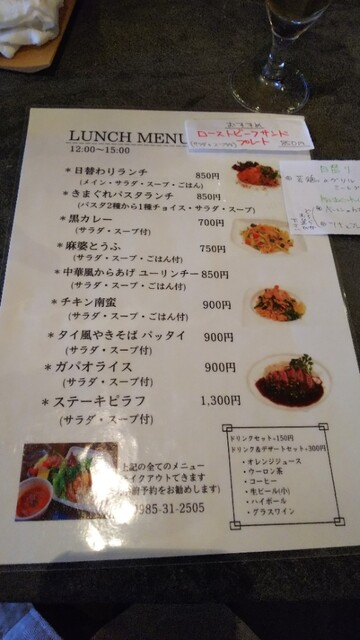 おすすめ
ローストビーフサンド
プレート
LUNCH MENU
12:00~15:00
＊日替わりランチ 850円
(メイン・サラダ・スープ・ごはん)
＊きまぐれパスタランチ 850円
(パスタ2種から1種チョイス・サラダ・スープ)
＊黒カレー 700円
(サラダ・スープ付)
＊麻婆とうふ 750円
(サラダ・スープ・ごはん付)
＊中華風からあげ ユーリンチー 850円
(サラダ・スープ・ごはん付)
＊チキン南蛮 900円
(サラダ・スープ・ごはん付)
＊タイ風やきそば パッタイ 900円
(サラダ・スープ付)
＊ガパオライス 900円
(サラダ・スープ付)
＊ステーキピラフ 1,300円
(サラダ・スープ付)
上記の全てのメニュー
イクアウトできます
前予約をお勧めします)
0985-31-2505
ドリンクセット+150円
ドリンク&デザートセット+300円
・オレンジジュース
・ウーロン茶
・コーヒー
・生ビール(小)
・ハイボール
・グラスワイン